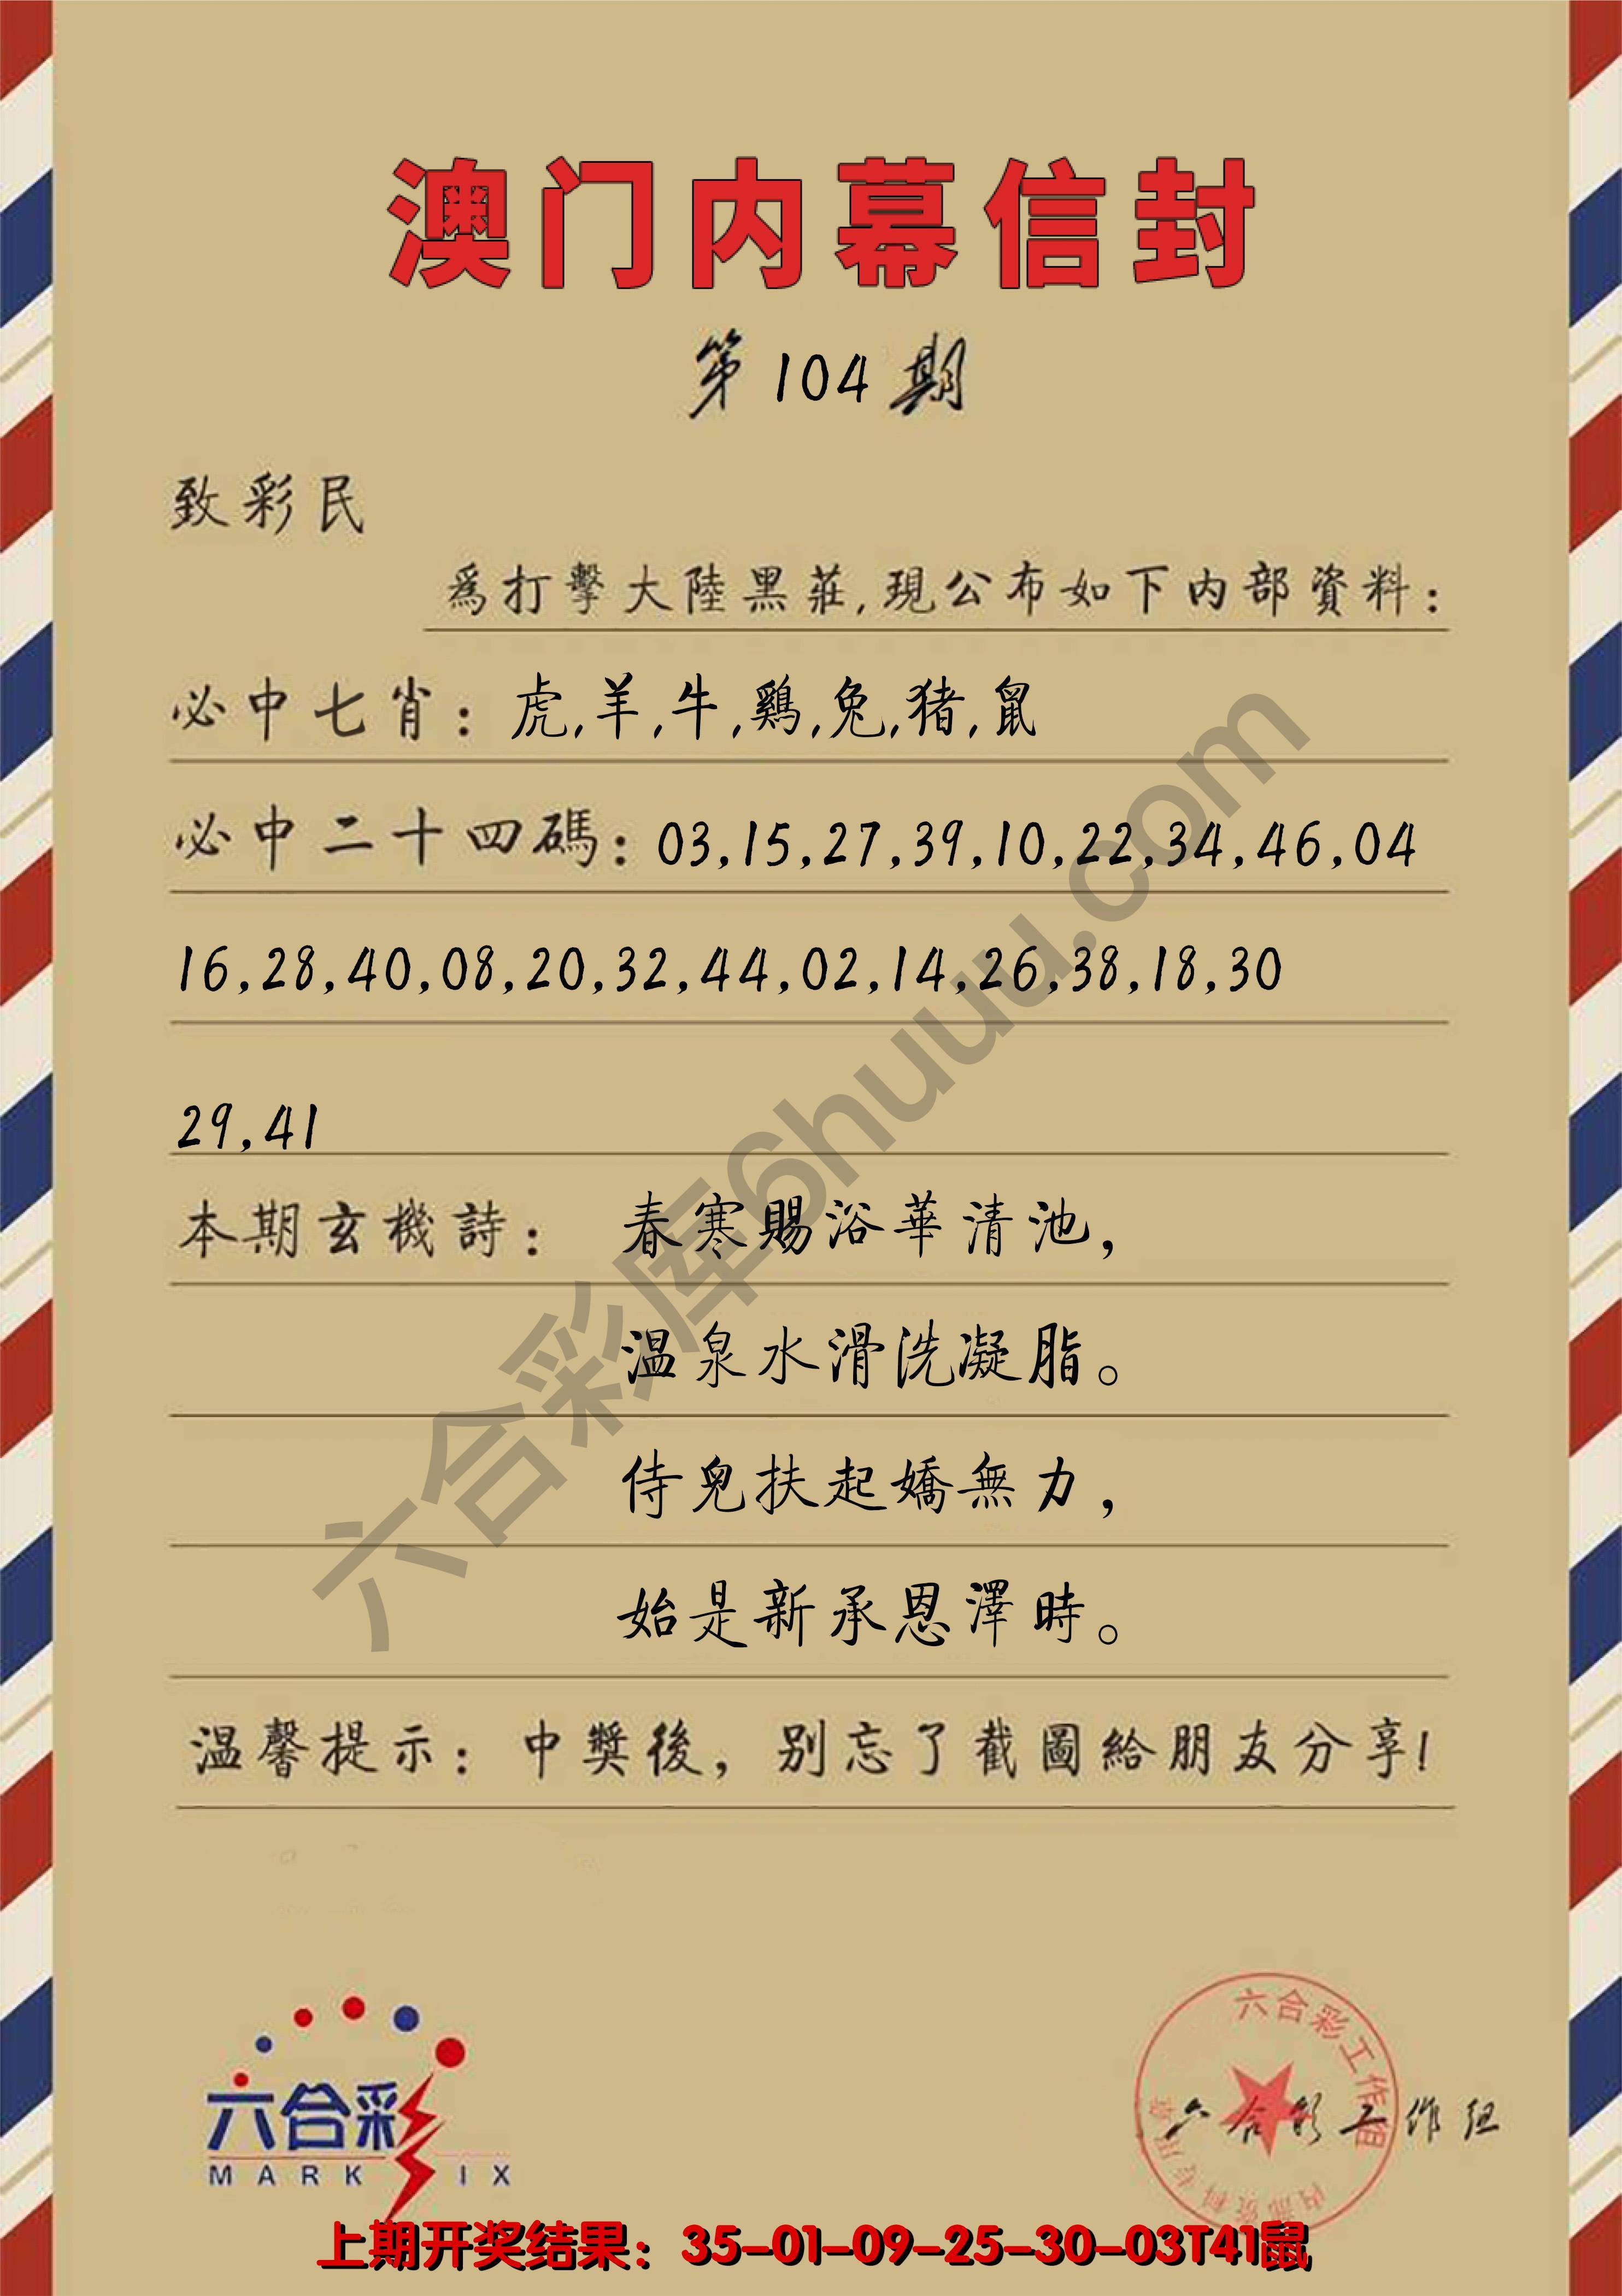 澳门内幕信封
第104期
致彩民
爲打擊大陸黑莊,現公布如下内部資料:
必中七肖: 虎,羊,牛,鷄,兔,猪,鼠
必中二十四碼: 03,15,27,39,10,22,34,46,04
16,28,40,08,20,32,44,02,14,26,38,18,30
29,41
本期玄機詩: 春寒賜浴華清池,
温泉水滑洗凝脂。
侍兒扶起嬌無力,
始是新承恩澤時。
温馨提示: 中獎後, 别忘了截圖給朋友分享!
六合彩库6huuu.com
六合彩
MARK IX
六合彩工作组
内部资料专用章
六合彩工作组
上期开奖结果: 35-01-09-25-30-03T41鼠